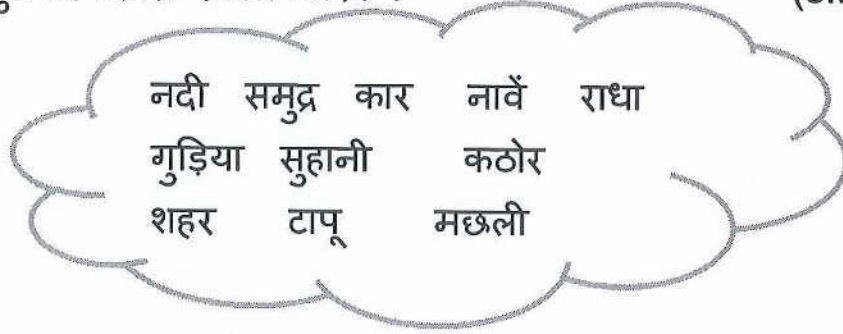 नदी समुद्र कार नावें राधा
गुड़िया सुहानी कठोर
शहर टापू मछली